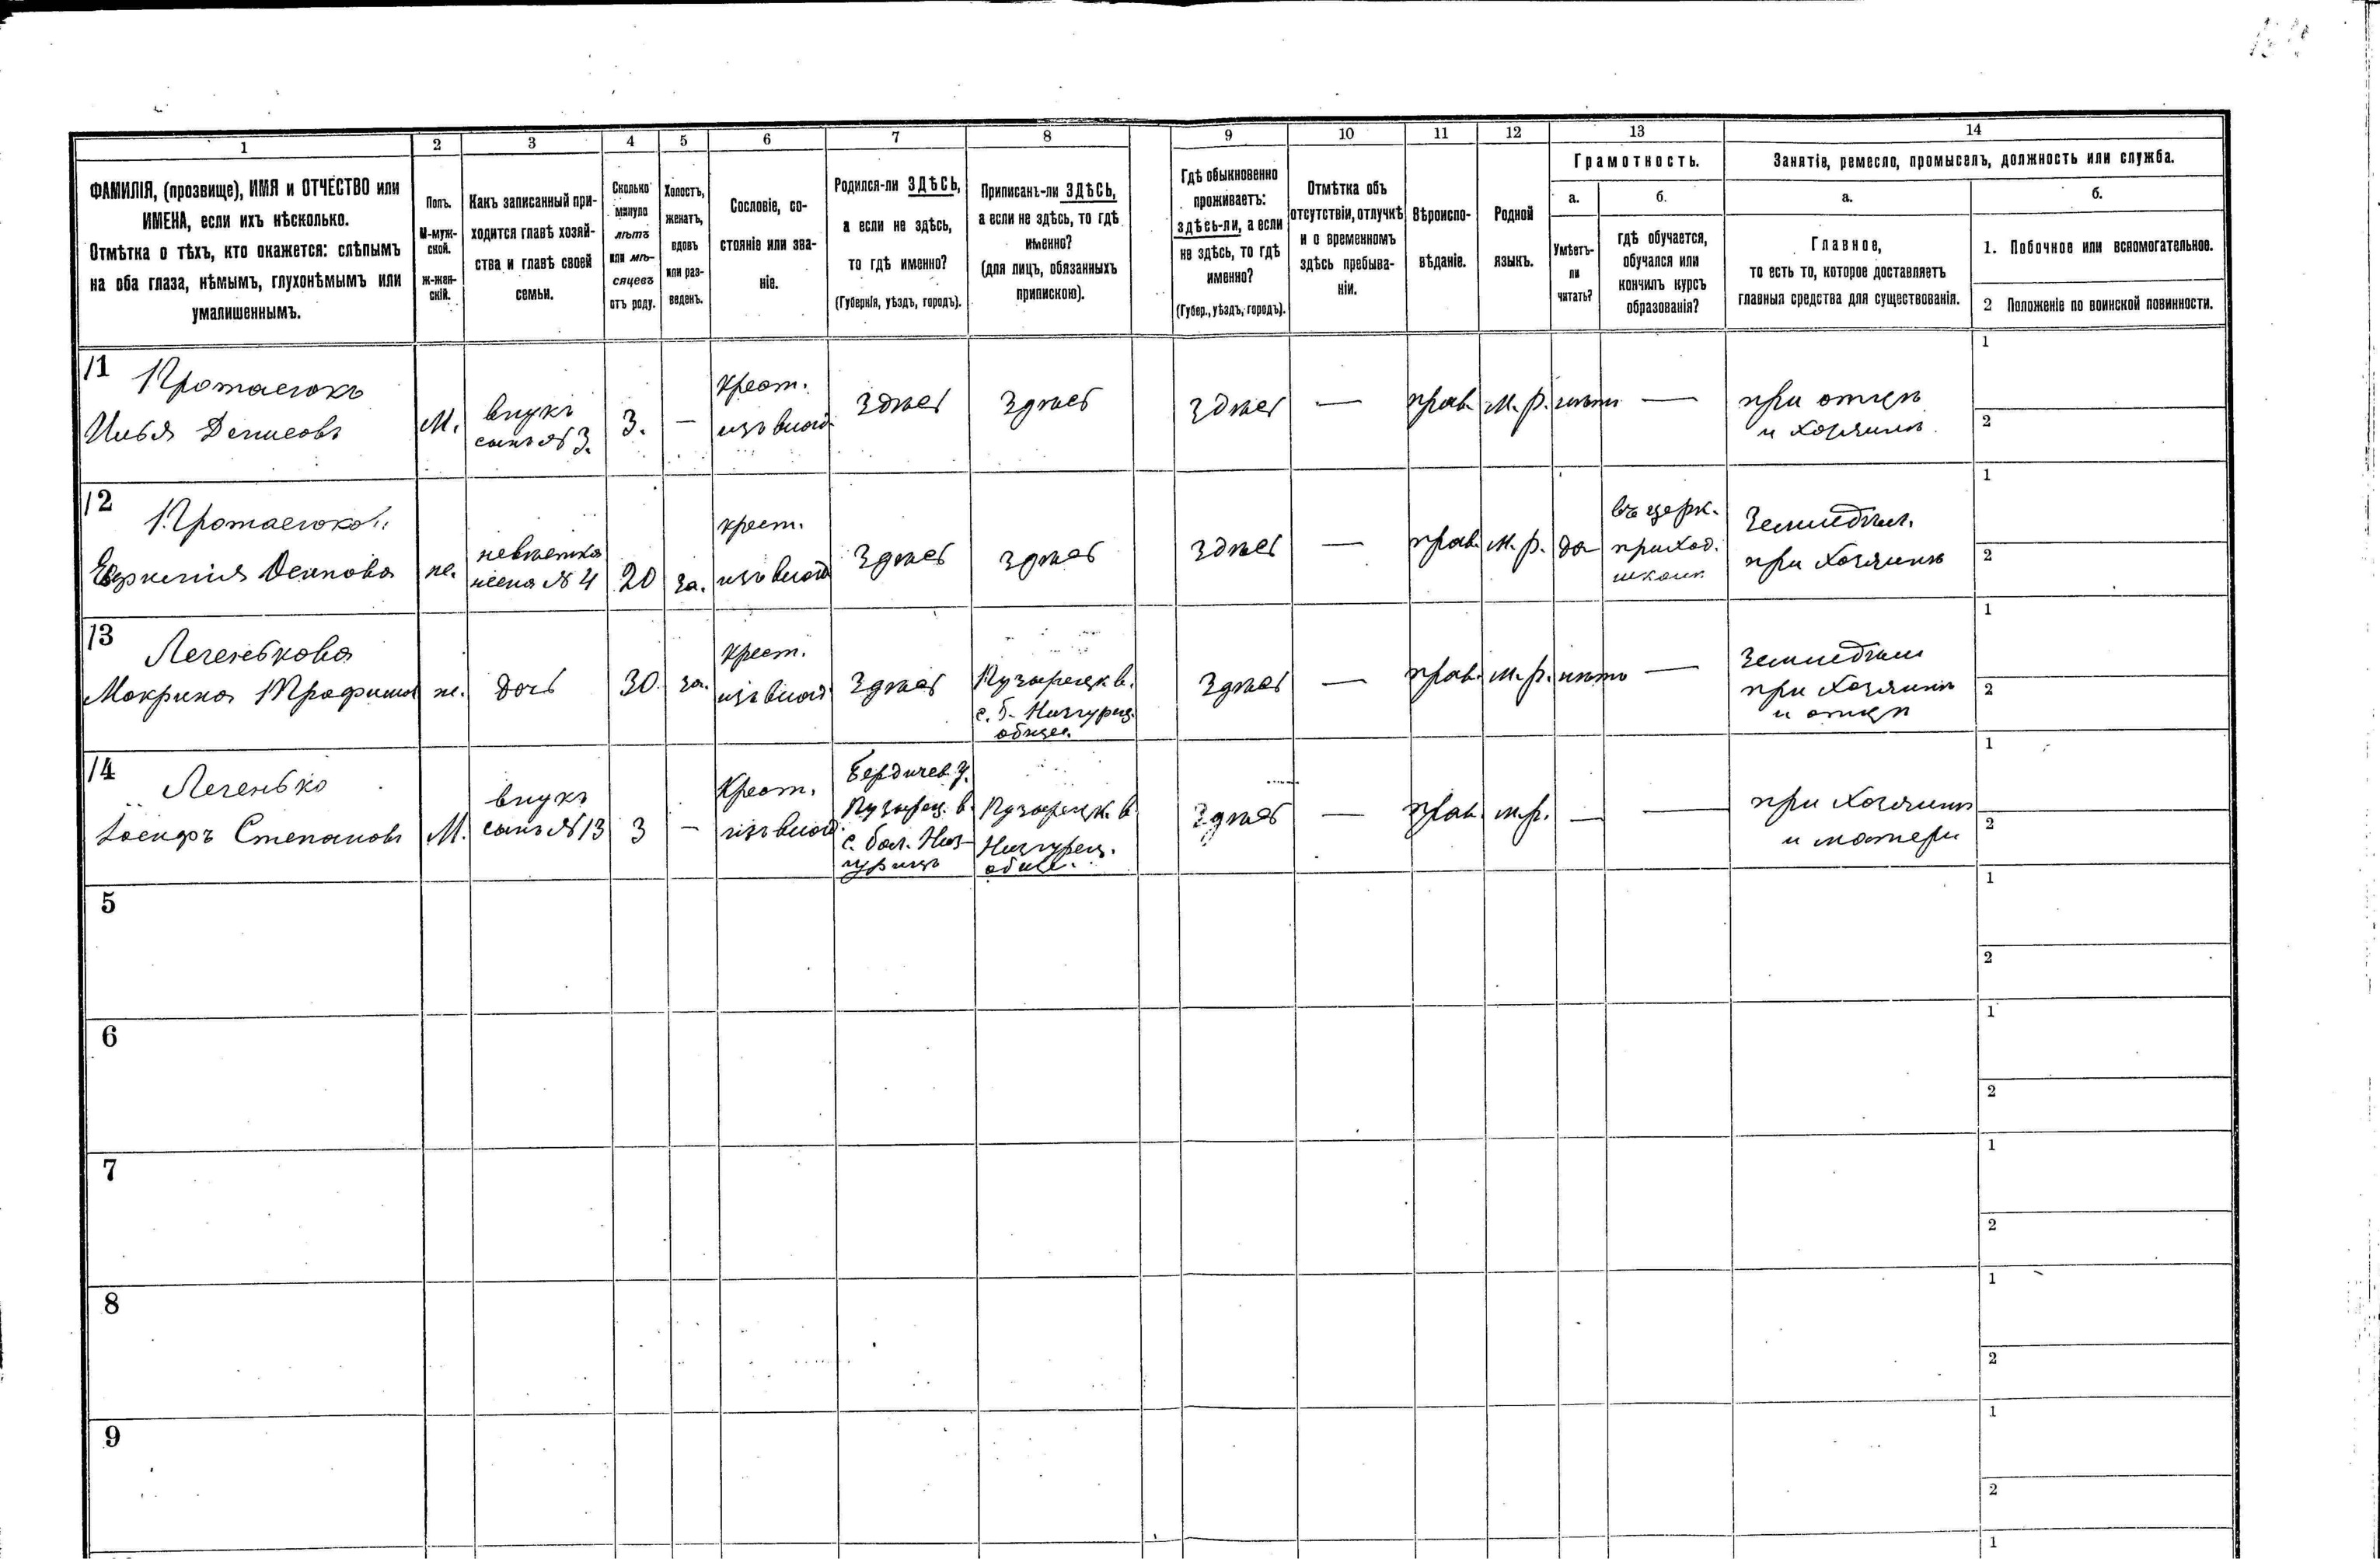 1 2 3 4 5 6 7 8 9 10 11 12 13 14
ФАМИЛІЯ, (прозвище), ИМЯ и ОТЧЕСТВО или
ИМЕНА, если ихъ нѣсколько.
Отмѣтка о тѣхъ, кто окажется: слѣпымъ
на оба глаза, нѣмымъ, глухонѣмымъ или
умалишеннымъ.
Полъ.
М-муж-
ской.
ж-жен-
скій.
Какъ записанный при-
ходится главѣ хозяй-
ства и главѣ своей
семьи.
Сколько
минуло
лѣтъ
или мѣ-
сяцевъ
отъ роду.
Холостъ,
женатъ,
вдовъ
или раз-
веденъ.
Сословіе, со-
стояніе или зва-
ніе.
Родился-ли ЗДѢСЬ,
а если не здѣсь,
то гдѣ именно?
(Губернія, уѣздъ, городъ).
Приписанъ-ли ЗДѢСЬ,
а если не здѣсь, то гдѣ
именно?
(для лицъ, обязанныхъ
припискою).
Гдѣ обыкновенно
проживаетъ:
здѣсь-ли, а если
не здѣсь, то гдѣ
именно?
(Губер., уѣздъ, городъ).
Отмѣтка объ
отсутствіи, отлучкѣ
и о временномъ
здѣсь пребыва-
ніи.
Вѣроиспо-
вѣданіе.
Родной
языкъ.
Грамотность.
а.
Умѣетъ-
ли
читать?
б.
гдѣ обучается,
обучался или
кончилъ курсъ
образованія?
Занятіе, ремесло, промыселъ, должность или служба.
а.
Главное,
то есть то, которое доставляетъ
главныя средства для существованія.
б.
1. Побочное или вспомогательное.
2 Положеніе по воинской повинности.
11 Протасюкъ
Илья Денисовъ
М.
внукъ
сынъ №3.
3.
—
крест.
изъ влад.
Здѣсь
Здѣсь
Здѣсь
—
прав.
м.р.
нѣтъ
—
при отцѣ
и хозяинѣ
1
2
12 Протасюков
Евгенія
же.
невѣстка
жена №4
20
за.
крест.
изъ влад
Здѣсь
Здѣсь
Здѣсь
—
прав.
м.р.
да
въ церк.
приход.
школѣ
Земледѣл.
при хозяинѣ
1
2
13 Легенькова
Макрина Трофимов
ж.
дочь
30.
за.
крест.
изъ влад.
Здѣсь
Пузырецк в.
с. б. Низгурец.
общес.
Здѣсь
—
прав.
м.р.
нѣтъ
—
Земледѣл
при хозяинѣ
и отцѣ
1
2
14 Легенько
Іосифъ Степановъ
М.
внукъ
сынъ №13
3
—
Крест.
изъ влад.
Бердичев. у.
Пузырец. в.
с. бол. Низ-
гурицъ
Пузырецк. в
Низгурец.
общес.
Здѣсь
—
прав.
м.р.
—
—
при хозяинѣ
и матери
1
2
5
1
2
6
1
2
7
1
2
8
1
2
9
1
2
1